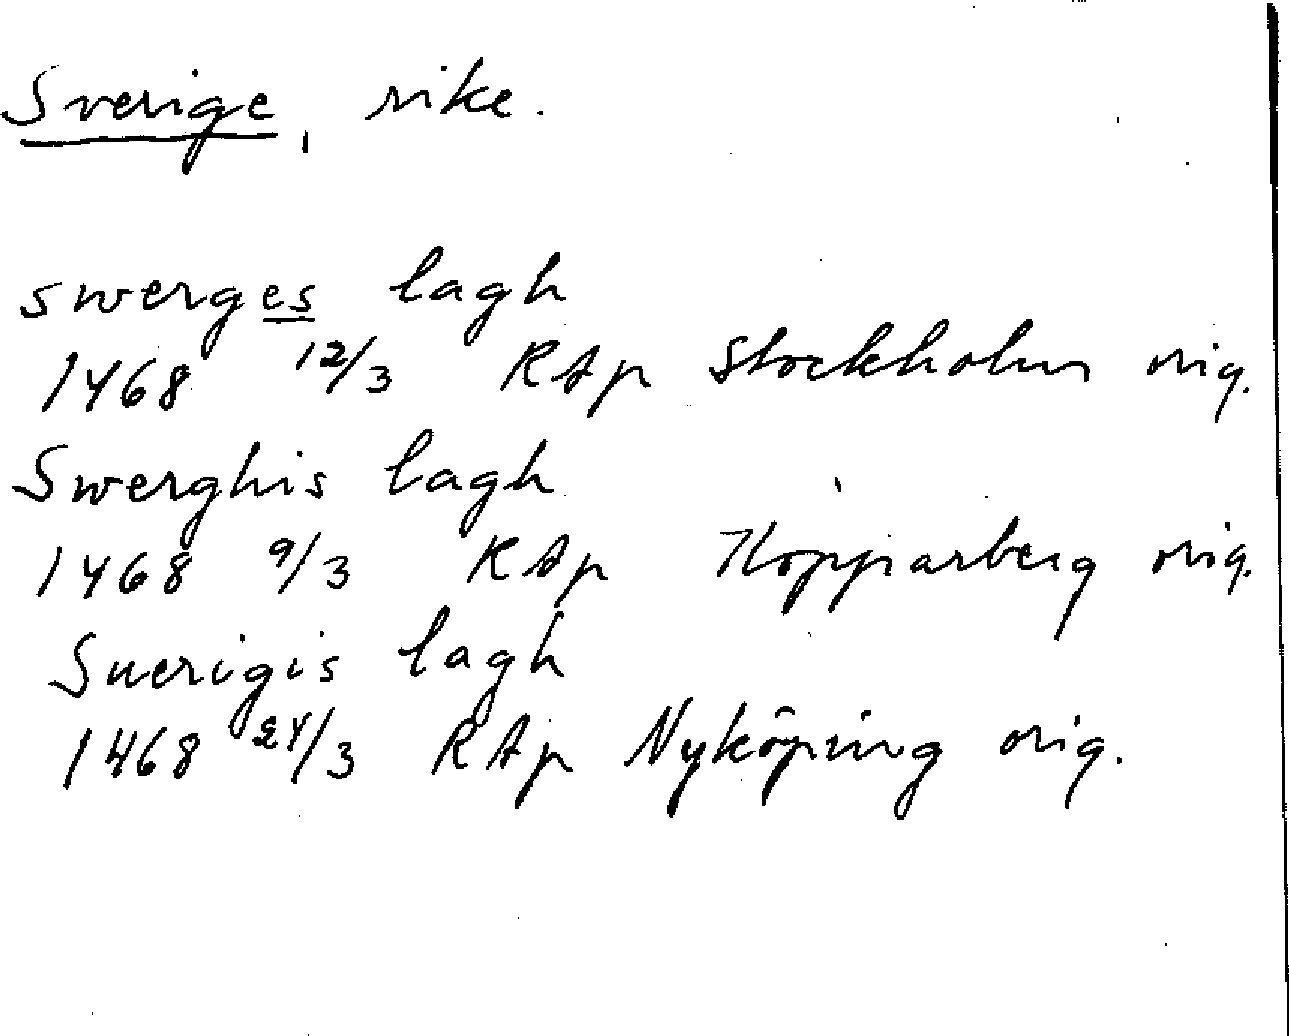 Sverige, rike.
swerges lagh
1468 12/3 RAp Stockholm orig.
Swerghis lagh
1468 9/3 RAp Kopparberg orig.
Suerigis lagh
1468 24/3 RAp Nyköping orig.